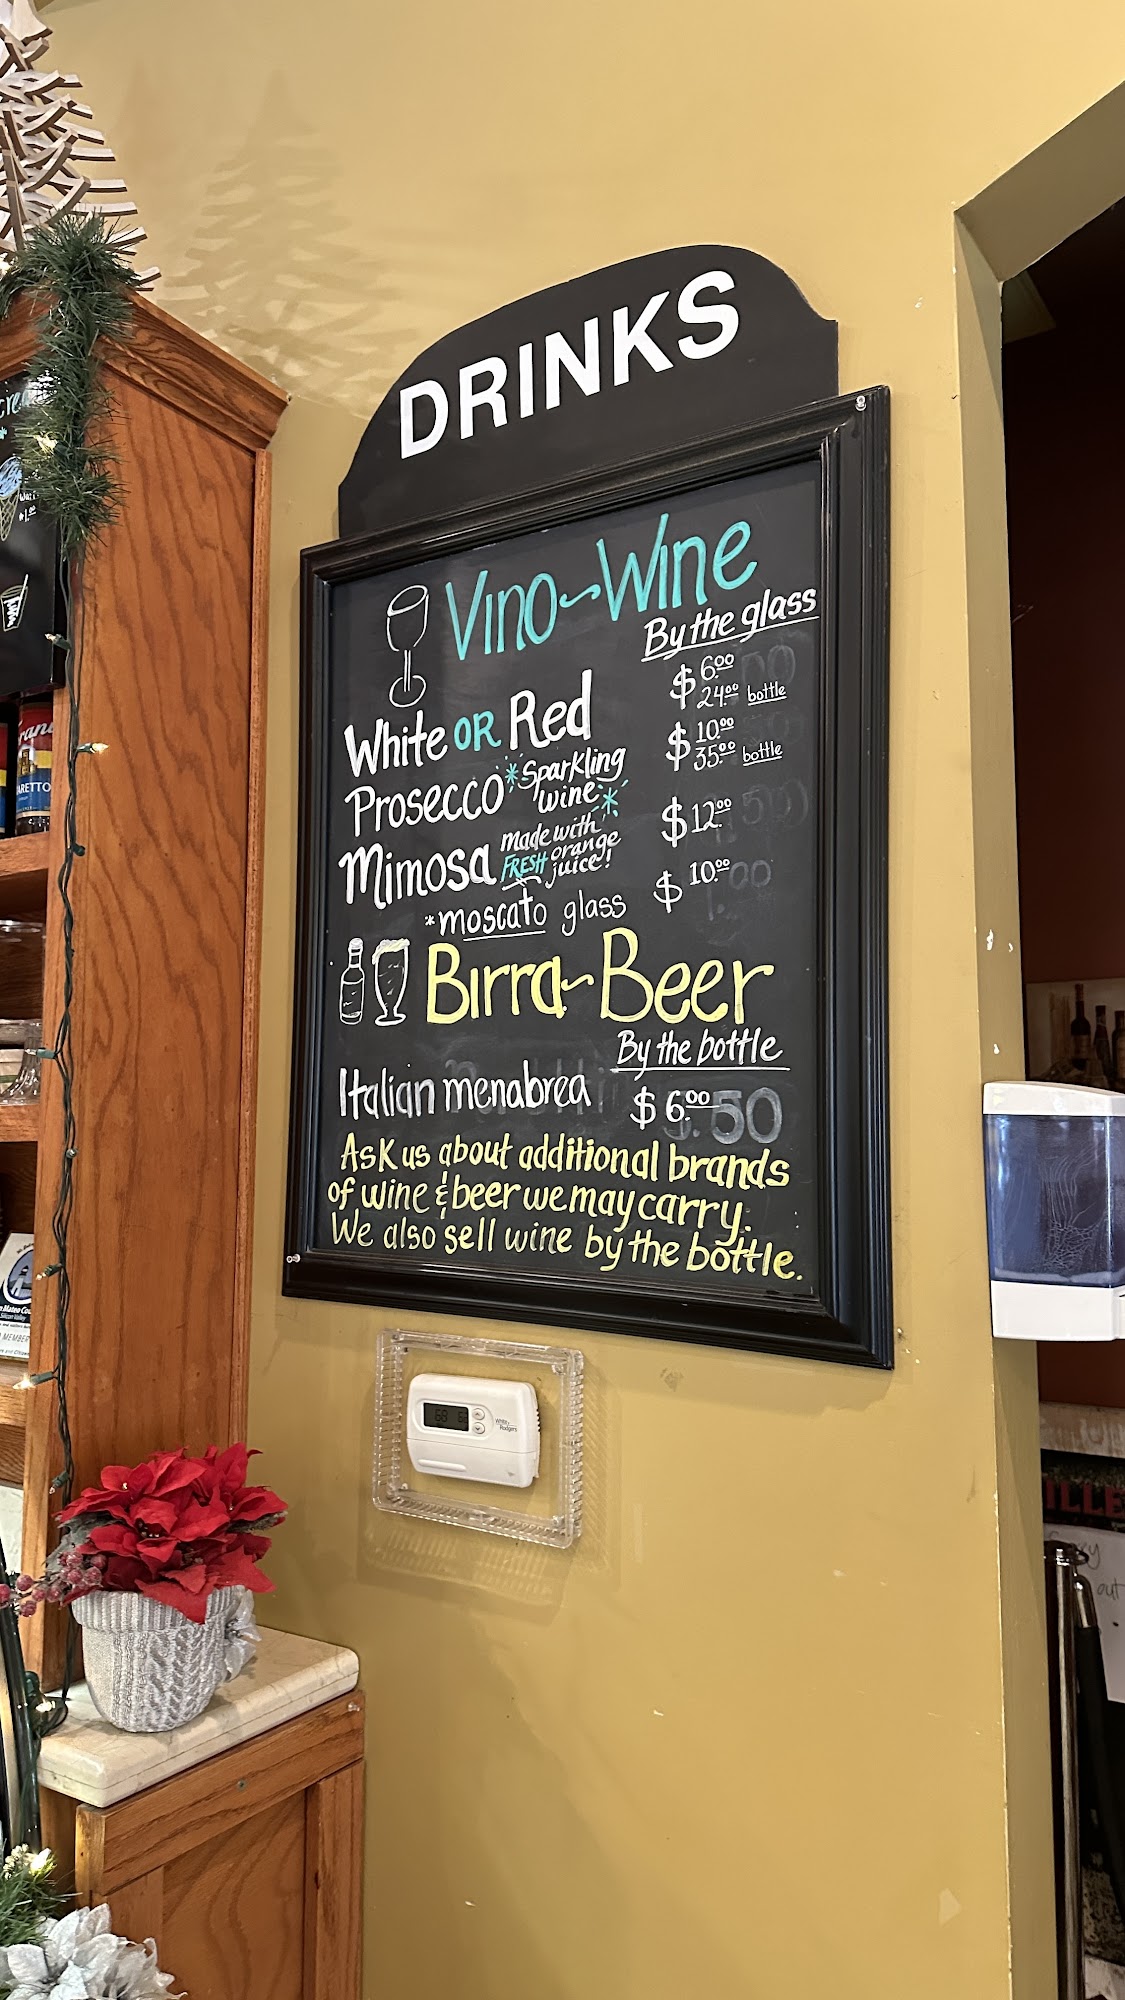 DRINKS
Vino~Wine
By the glass
White OR Red $6.00
24.00 bottle
Prosecco *Sparkling wine* $10.00
35.00 bottle
Mimosa made with FRESH orange juice! $12.00
*moscato glass $10.00
Birra~Beer
By the bottle
Italian menabrea $6.00
Ask us about additional brands
of wine & beer we may carry.
We also sell wine by the bottle.
White
Rodgers
68
MEMBER
ILLE
out